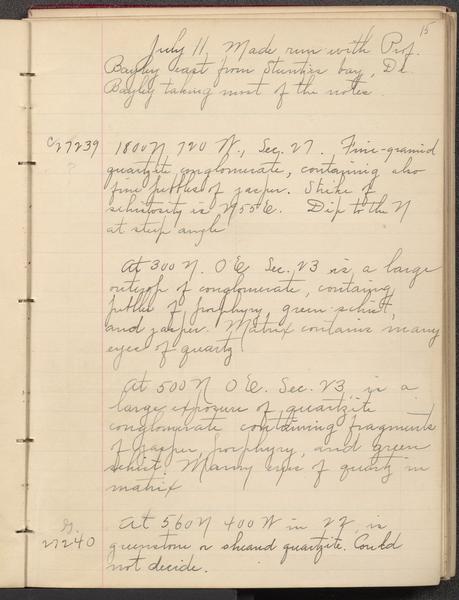 15
July 11, Made run with Prof.
Bayley east from Stuntz's bay, Dr.
Bayley taking most of the notes.
C 27239 1800N 720 W, Sec. 27. Fine-grained
quartzite conglomerate, containing also
fine pebbles of jasper. Strike of
schistosity is N55°E. Dip to the N
at steep angle
At 300 N. 0 E. Sec. 23 is a large
outcrop of conglomerate, containg
pebbles of porphyry, green schist,
and jasper. Matrix contains many
eyes of quartz
At 500 N 0 E. Sec. 23, is a
large exposure of quartzite
conglomerate containing fragments
of jasper, porphyry, and green
schist. Many eyes of quartz in
matrix
G. At 560 N 400 W in 22, is
27240 greenstone or sheared quartzite. Could
not decide.